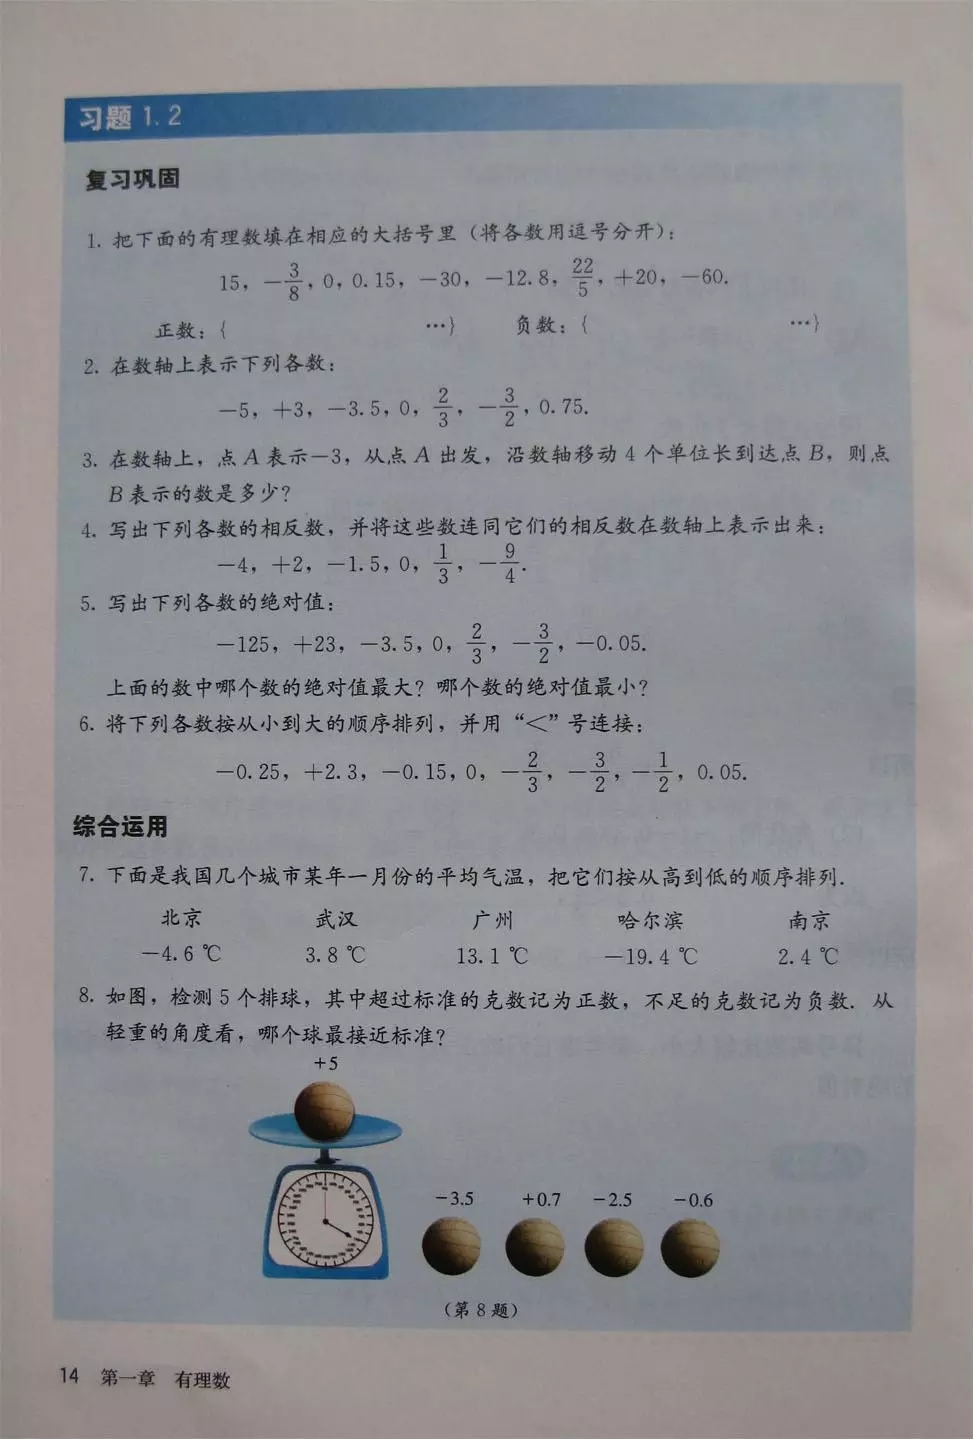 习题 1.2
复习巩固
1. 把下面的有理数填在相应的大括号里（将各数用逗号分开）：
15，−3/8，0，0.15，−30，−12.8，22/5，+20，−60.
正数：{ …} 负数：{ …}
2. 在数轴上表示下列各数：
−5，+3，−3.5，0，2/3，−3/2，0.75.
3. 在数轴上，点 A 表示−3，从点 A 出发，沿数轴移动 4 个单位长到达点 B，则点
B 表示的数是多少？
4. 写出下列各数的相反数，并将这些数连同它们的相反数在数轴上表示出来：
−4，+2，−1.5，0，1/3，−9/4.
5. 写出下列各数的绝对值：
−125，+23，−3.5，0，2/3，−3/2，−0.05.
上面的数中哪个数的绝对值最大？哪个数的绝对值最小？
6. 将下列各数按从小到大的顺序排列，并用“<”号连接：
−0.25，+2.3，−0.15，0，−2/3，−3/2，−1/2，0.05.
综合运用
7. 下面是我国几个城市某年一月份的平均气温，把它们按从高到低的顺序排列.
北京 武汉 广州 哈尔滨 南京
−4.6 ℃ 3.8 ℃ 13.1 ℃ −19.4 ℃ 2.4 ℃
8. 如图，检测 5 个排球，其中超过标准的克数记为正数，不足的克数记为负数. 从
轻重的角度看，哪个球最接近标准？
+5
−3.5 +0.7 −2.5 −0.6
（第 8 题）
14 第一章 有理数